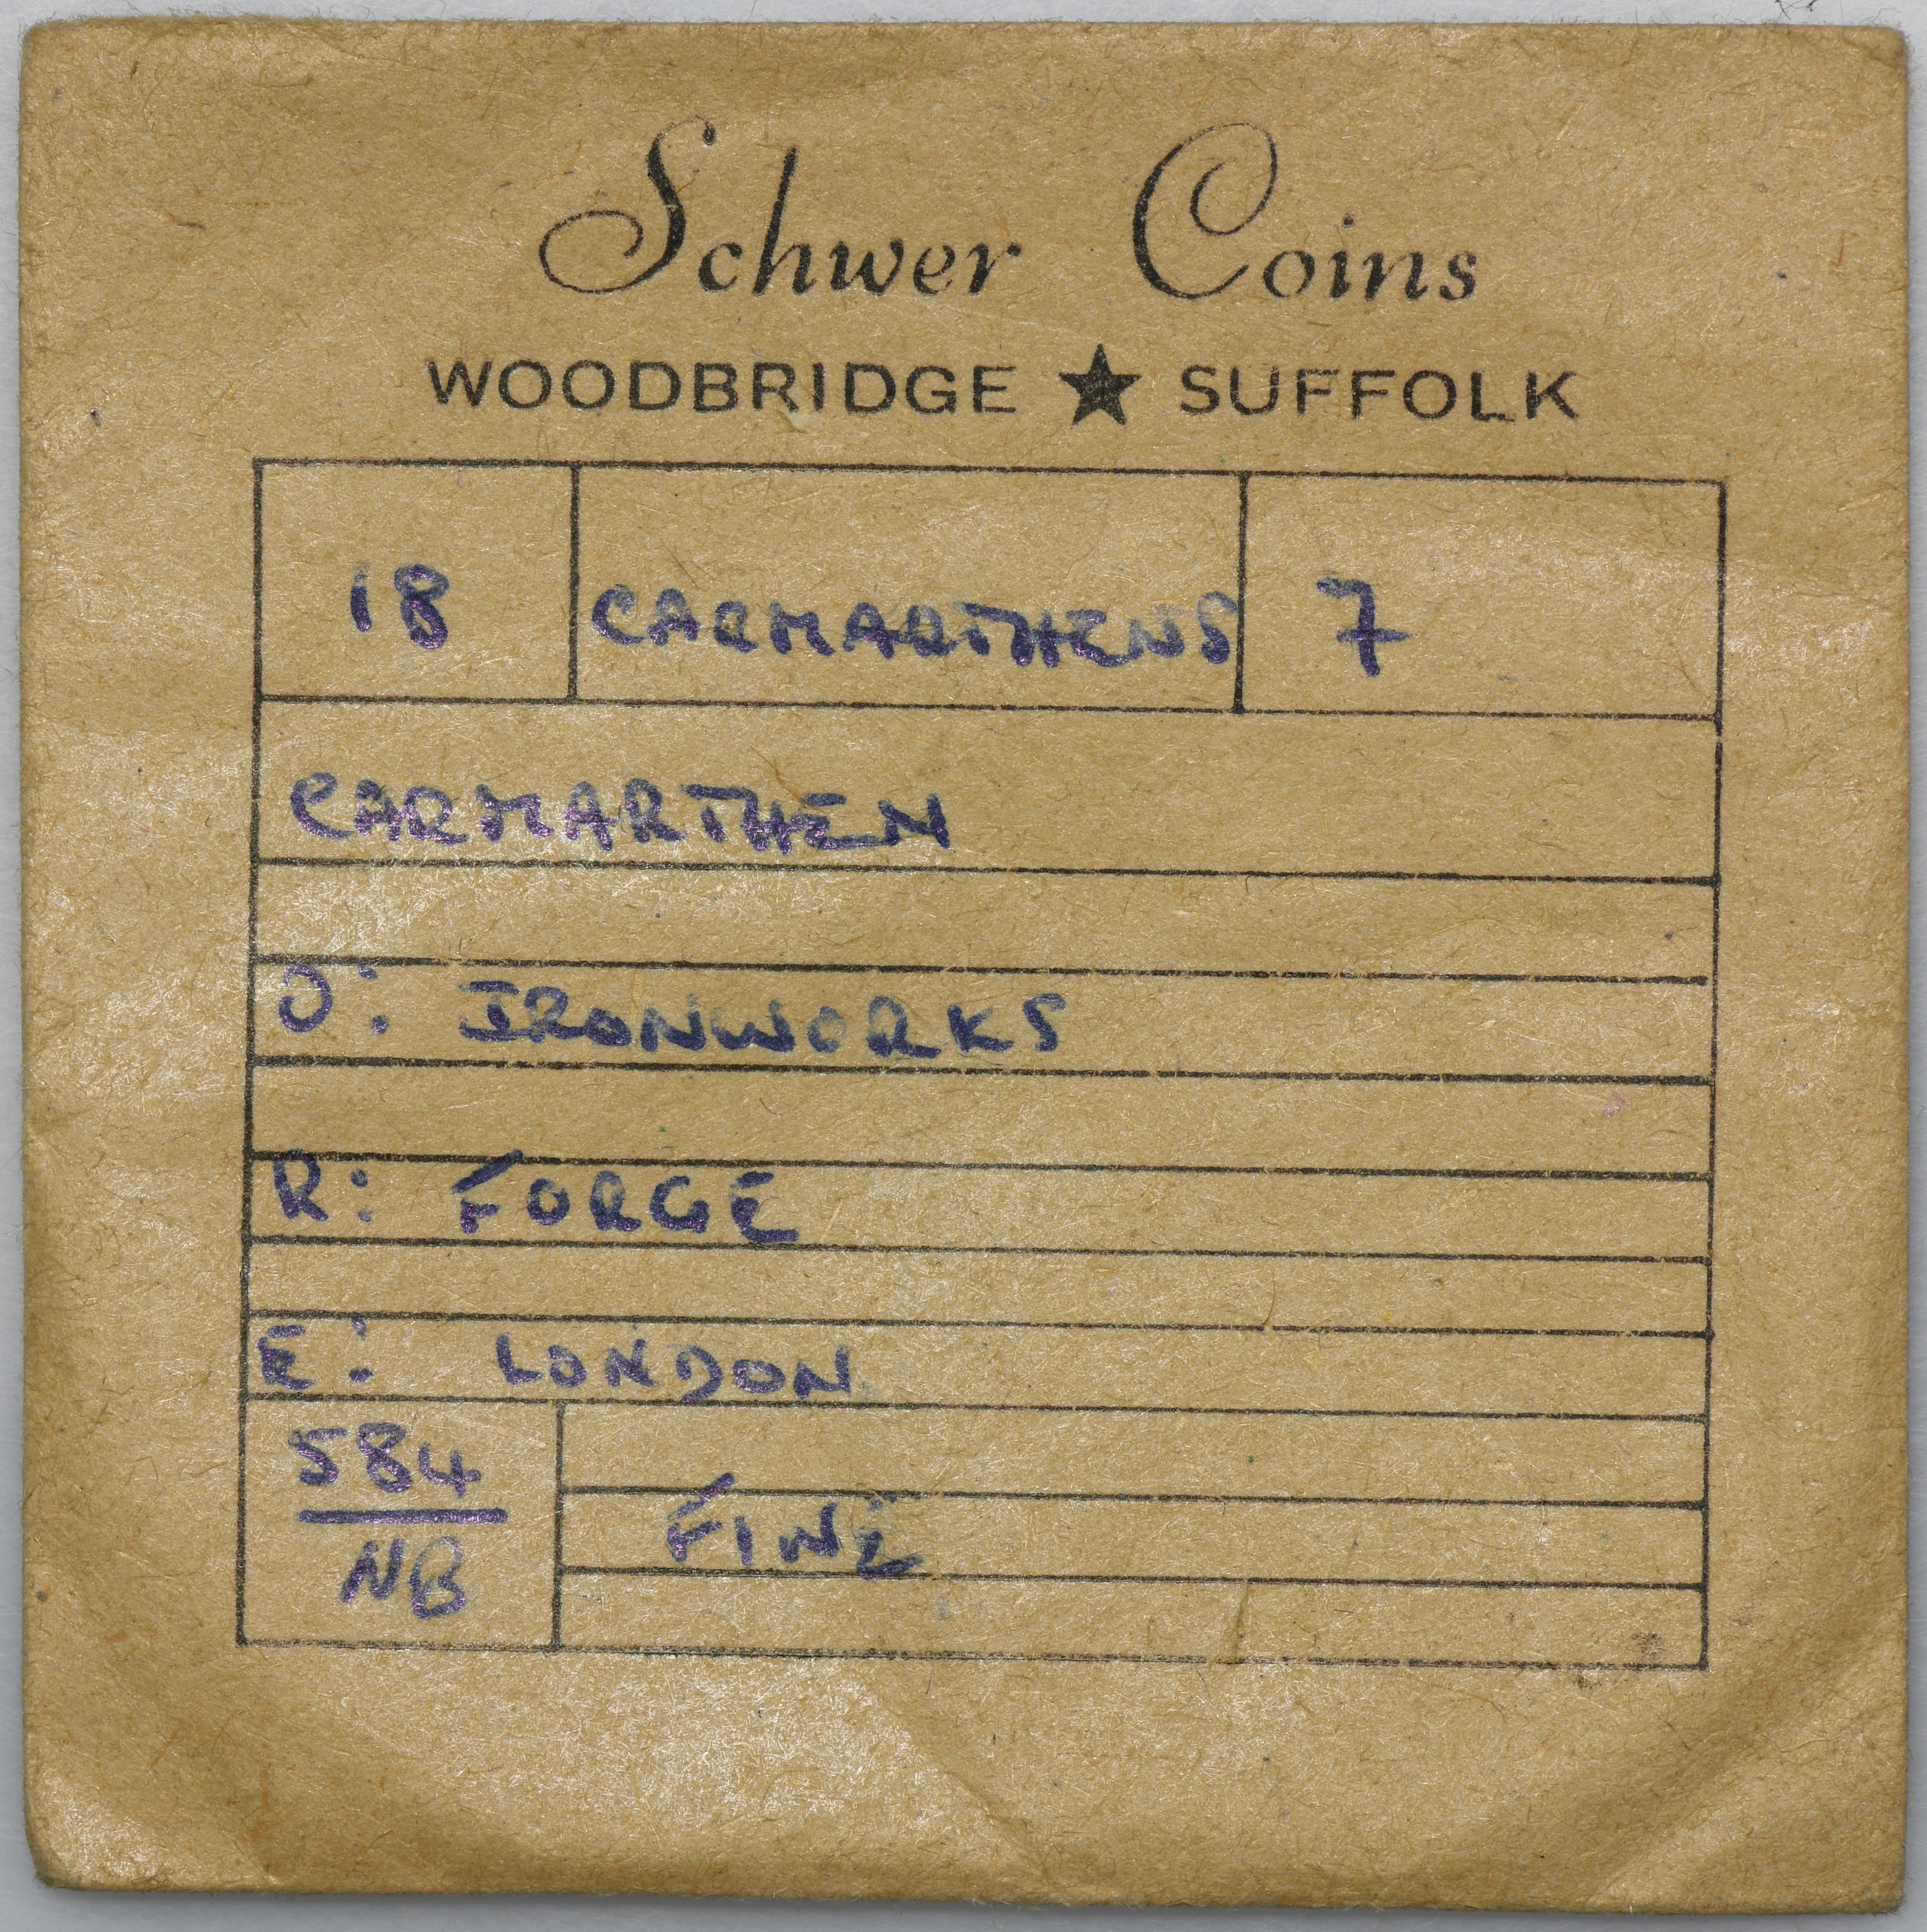 Schwer Coins
WOODBRIDGE ★ SUFFOLK
18 CARMARTHENS 7
CARMARTHEN
O: IRONWORKS
R: FORGE
E: LONDON
584
NB
FINE